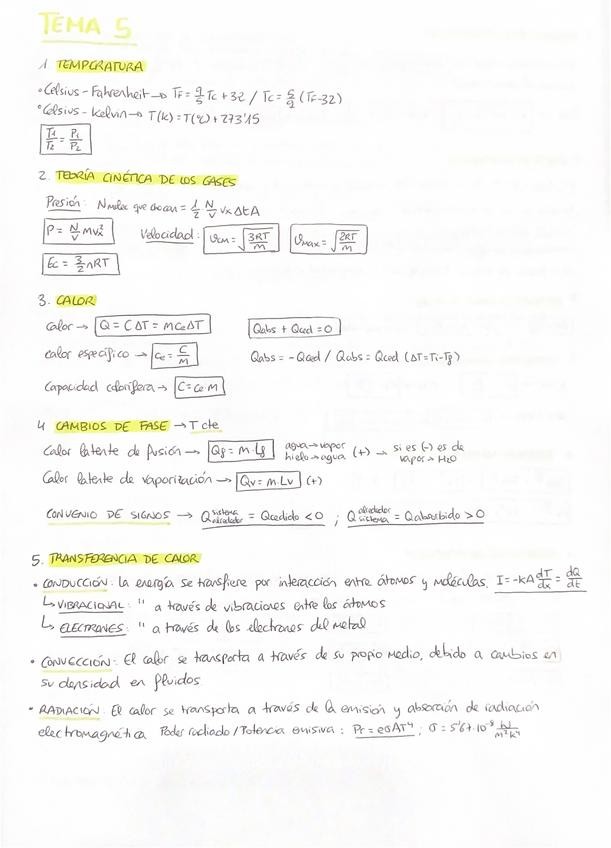 TEMA 5
1 TEMPERATURA
• Celsius - Fahrenheit → TF = 9/5 Tc + 32 / Tc = 5/9 (TF-32)
• Celsius - Kelvin → T(K) = T(ºC) + 273'15
T1/T2 = P1/P2
2. TEORÍA CINÉTICA DE LOS GASES
Presión: N molec que chocan = 1/2 N/V vx Δt A
P = N/V mvx² Velocidad: vcm = √(3RT/M) vmax = √(2RT/M)
Ec = 3/2 nRT
3. CALOR
Calor → Q = CΔT = mCeΔT Qabs + Qced = 0
calor específico → ce = C/M Qabs = -Qced / Qabs = Qced (ΔT = Ti-Tf)
Capacidad calorífera → C = ce·m
4 CAMBIOS DE FASE → T cte
Calor latente de fusión → Qf = m·Lf agua → vapor hielo → agua (+) → si es (-) es de vapor → H2O
Calor latente de vaporización → Qv = m·Lv (+)
CONVENIO DE SIGNOS → Q sistema alrededor = Qcedido < 0 ; Q alrededor sistema = Qabsorbido > 0
5. TRANSFERENCIA DE CALOR
• CONDUCCIÓN: La energía se transfiere por interacción entre átomos y moléculas. I = -kA dT/dx = dQ/dt
↳ VIBRACIONAL: " a través de vibraciones entre los átomos
↳ ELECTRONES: " a través de los electrones del metal
• CONVECCIÓN: El calor se transporta a través de su propio medio, debido a cambios en
su densidad en fluidos
• RADIACIÓN: El calor se transporta a través de la emisión y absorción de radiación
electromagnética Poder radiado / Potencia emisiva: Pr = eσAT⁴ ; σ = 5'67·10⁻⁸ W/m²K⁴